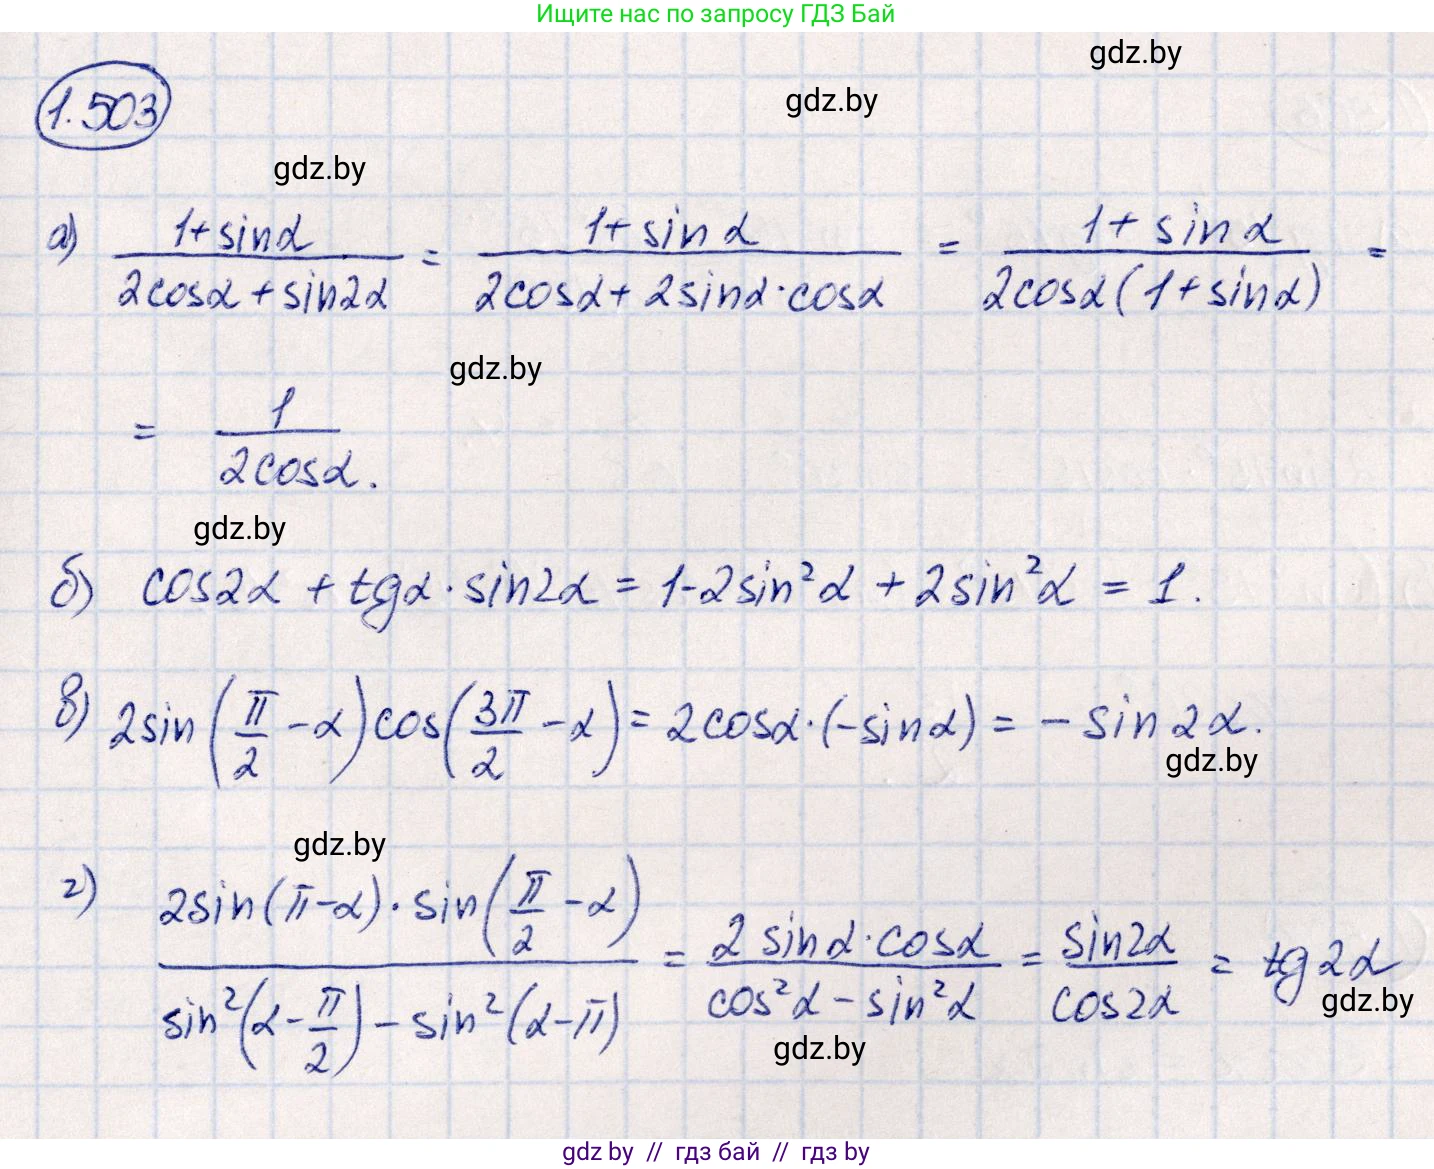 Ищите нас по запросу ГДЗ Бай
gdz.by
gdz.by
1.503
gdz.by
а) (1+sinα)/(2cosα+sin2α) = (1+sinα)/(2cosα+2sinα·cosα) = (1+sinα)/(2cosα(1+sinα)) =
gdz.by
= 1/(2cosα).
gdz.by
б) cos2α + tgα·sin2α = 1-2sin²α + 2sin²α = 1.
в) 2sin(π/2 -α)cos(3π/2 -α) = 2cosα·(-sinα) = -sin2α.
gdz.by
gdz.by
г) (2sin(π-α)·sin(π/2 -α))/(sin²(α-π/2) - sin²(α-π)) = (2sinα·cosα)/(cos²α-sin²α) = sin2α/cos2α = tg2α
gdz.by
gdz.by
gdz by // гдз бай // гдз by